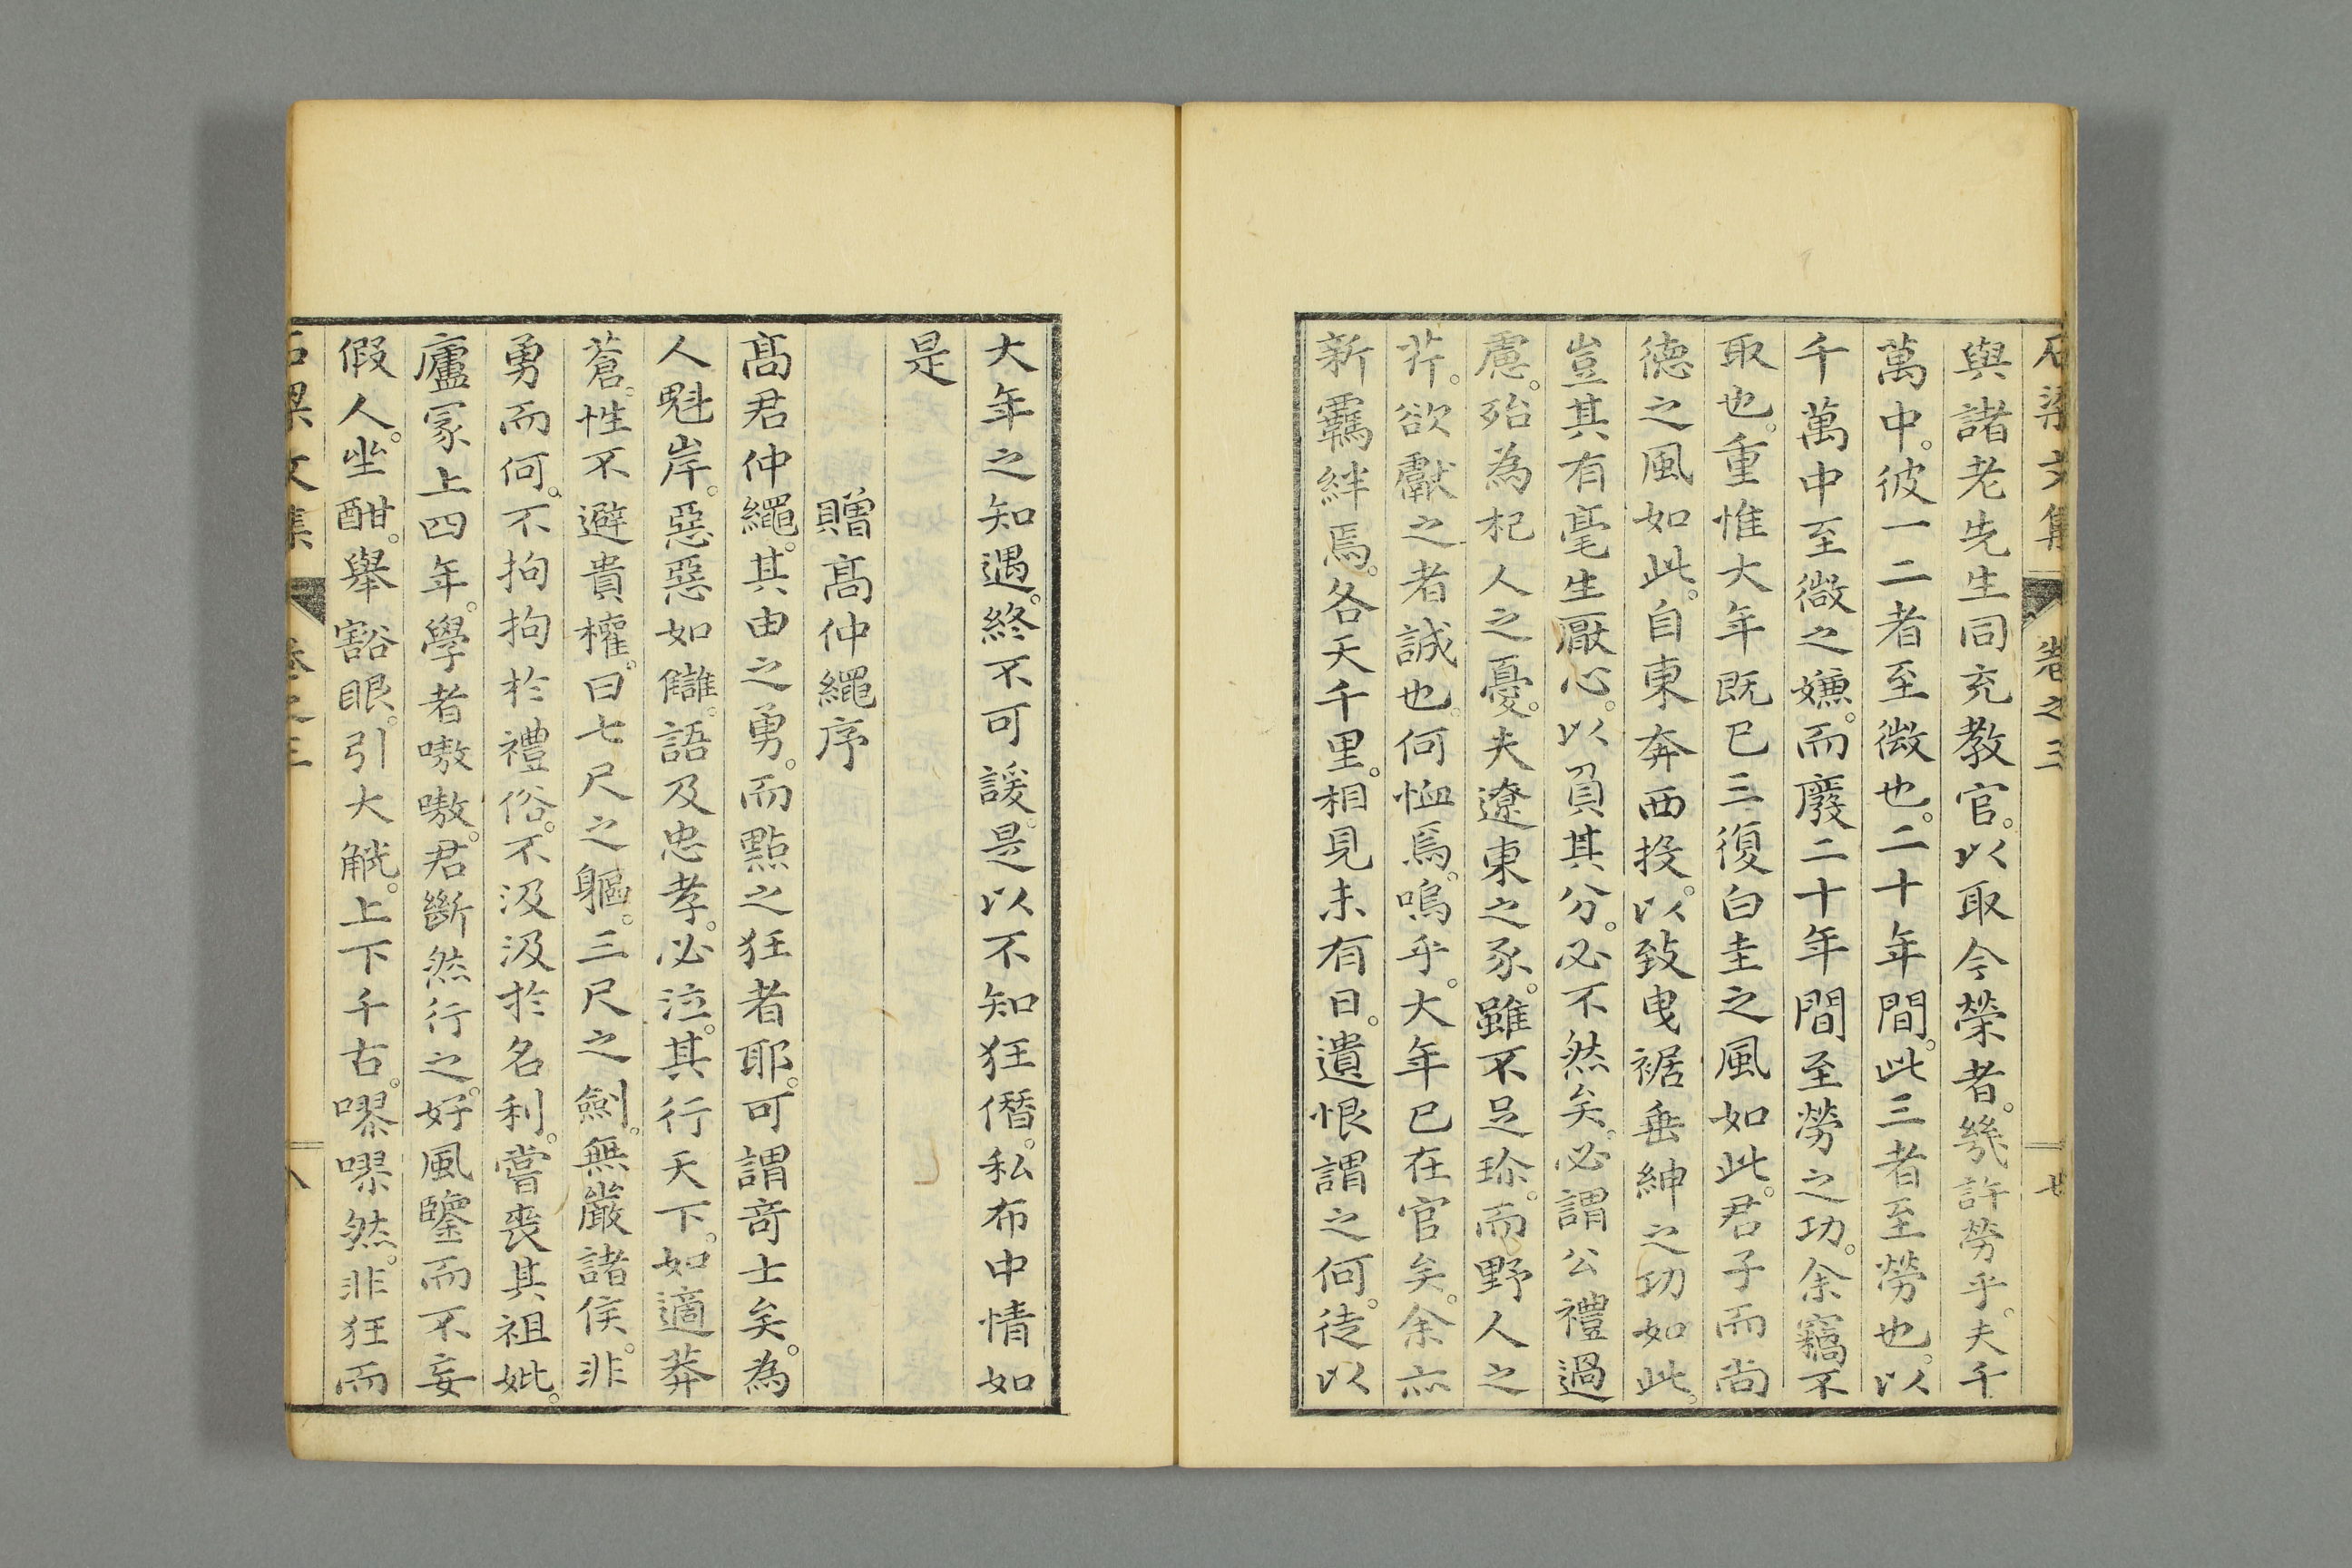 石梁文集 卷之三 廿
與諸老先生同充教官。以取今榮者。幾許勞乎。夫千
萬中。彼一二者至微也。二十年間。此三者至勞也。以
千萬中至微之嫌。而廢二十年間至勞之功。余竊不
取也。重惟大年既已三復白圭之風如此。君子而尚
德之風如此。自東奔西投。以致曳裾垂紳之功如此。
豈其有毫生厭心。以負其分。必不然矣。必謂公禮過
慮。殆為杞人之憂。夫遼東之豕。雖不足珍。而野人之
芹。欲獻之者誠也。何恤焉。嗚乎。大年已在官矣。余亦
新羈絆焉。各天千里。相見未有日。遺恨謂之何。徒以
大年之知遇。終不可諼。是以不知狂僭。私布中情如
是
贈髙仲繩序
髙君仲繩。其由之勇。而點之狂者耶。可謂奇士矣。為
人魁岸。惡惡如讎。語及忠孝。必泣。其行天下。如適莽
蒼。性不避貴權。曰七尺之軀。三尺之劍。無嚴諸侯。非
勇而何。不拘拘於禮俗。不汲汲於名利。嘗喪其祖妣。
廬冢上四年。學者嗷嗷。君斷然行之。好風鑒而不妄
假人。坐酣。舉豁眼。引大觥。上下千古。嘐嘐然。非狂而
石梁文集 卷之三